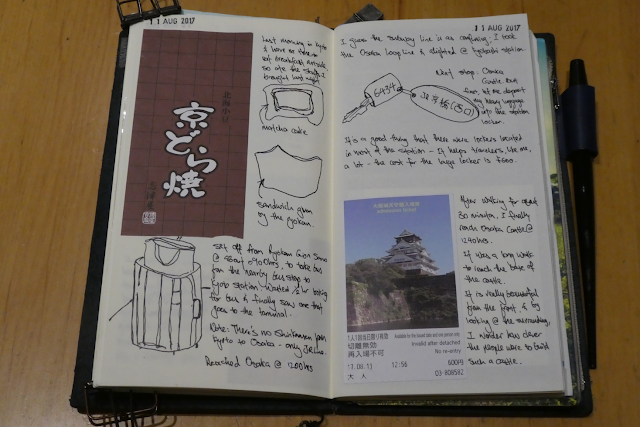 11 AUG 2017
Last morning in Kyoto
& have no time to
eat breakfast outside
so ate the
bought last night
北海小豆
京どら焼
matcha cake
sandwich given
by the ryokan.
Set off from Ryokan Gion Sano
@ about 0900hrs, to take bus
from the nearby bus stop to
Kyoto station. Waited
for bus & finally saw one that
goes to the terminal.
Note: There's no Shinkansen from
Kyoto to Osaka - only JR line.
Reached Osaka @ 1200hrs
11 AUG 2017
I guess the subway line is as confusing. I took
the Osaka loop line & alighted @ Kyobashi station.
Next stop: Osaka
Castle. But
first, let me deposit
my heavy luggage
into the station
locker.
6434
JR京橋(西口)
It's a good thing that there were lockers located
in most of the station - It helps travelers, like me,
a lot - the cost for the large locker is ¥600.
After waiting for about
30 minutes, I finally
reach Osaka Castle @
1240hrs.
It was a long walk
to reach the base of
the castle.
It is really beautiful
from the front, & by
looking @ the surrounding,
I wonder how clever
the people were to build
such a castle.
大阪城天守閣入場券
Admission Ticket
1人1回当日限り有効
Available for the issued date and one person only
切離無効
Invalid after detached
再入場不可
No re-entry
17.08.11
12:56
600円
大人
03-808582